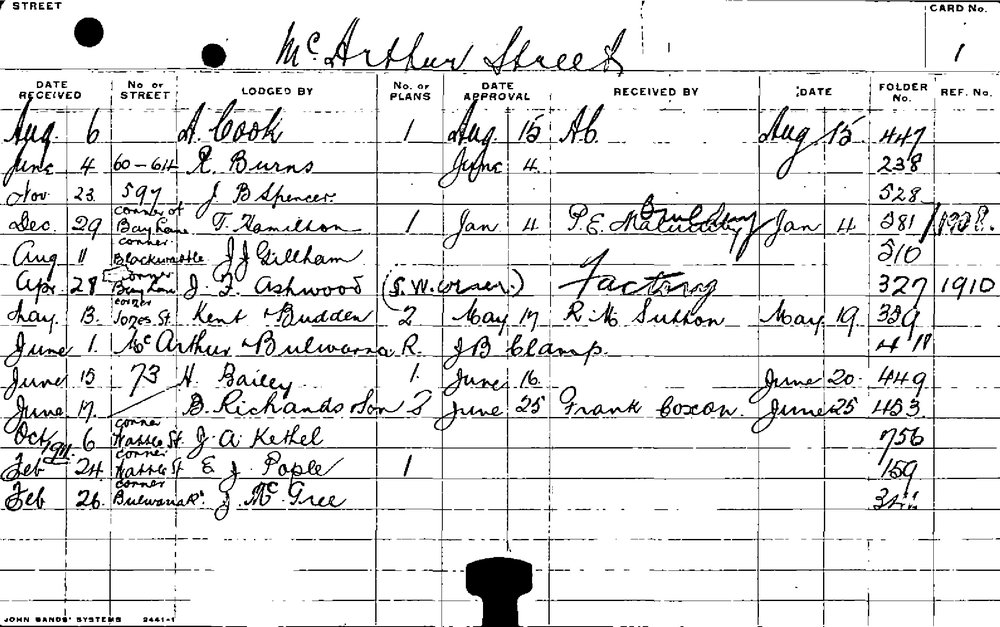 STREET
CARD No.
Mc Arthur Street
1
DATE RECEIVED No. OF STREET LODGED BY No. OF PLANS DATE APPROVAL RECEIVED BY DATE FOLDER No. REF. No.
Aug. 6 A. Cook 1 Aug 15 AC. Aug 15 447
June 4 60-64 R. Burns June 4. 238
Nov 23. 597 J B Spencer. 528
Dec. 29 corner of Bay Lane T. Hamilton 1 Jan 4 P.E. Jan 4 281 1908.
Aug 11 corner Blackwattle J J Gillham 510
Apr. 28 corner Bay Lane J. F. Ashwood (S. W. corner.) Factory 327 1910
May. 13. corner Jones St. Kent & Budden 2 May 17 R. M Sutton May 19. 339
June 1. Mc Arthur & Bulwarra R. J B Clamp.
June 15 73 H. Bailey 1. June 16. June 20. 449
June 17. B. Richards & Son 2 June 25 Frank Coxon. June 25 453
Oct 6 corner Wattle St. J. A. Kethel 756
1911.
Feb 24. corner Wattle St E J. Pople 1 159
Feb 26. corner Bulwarra Rd J. Mc Gree
JOHN SANDS' SYSTEMS 2441-1